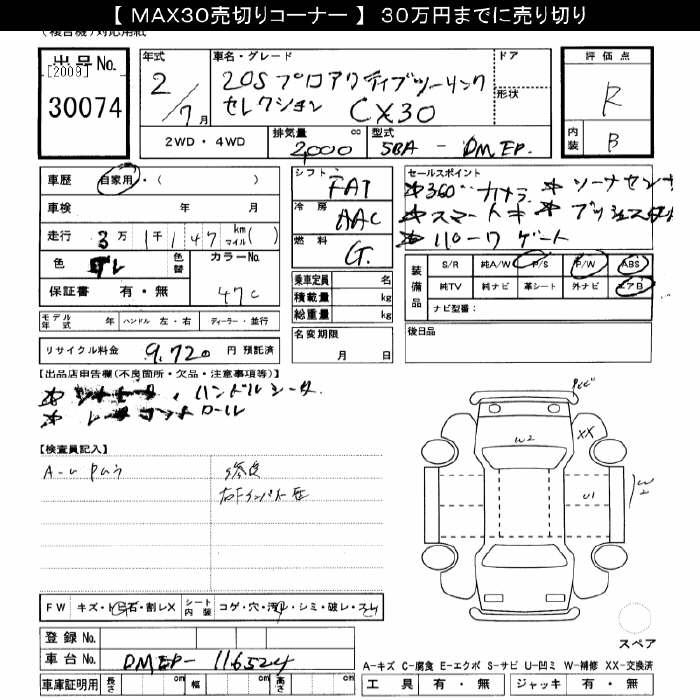 【 MAX30売切りコーナー 】 30万円までに売り切り
(複合機)対応用紙
出品No.
[2009]
30074
年式
2/7月
車名・グレード
20S プロアクティブツーリング
セレクション CX30
ドア
形状
2WD・4WD
排気量 cc
2,000
型式
5BA - DMEP.
評価点
R
内装
B
車歴 自家用・( )
車検 年 月
走行 3万1千147 km マイル( )
色 グレ
色替
カラーNo.
47C
保証書 有・無
モデル年式 年 ハンドル 左・右 ディーラー・並行
リサイクル料金 9,720 円 預託済
シフト FAT
冷房 AAC
燃料 G.
乗車定員 名
積載量 kg
総重量 kg
名変期限
月 日
セールスポイント
※360°カメラ ※ソーナセンサ
※スマートキ ※プッシュスタート
※パワーゲート
装備品
S/R 純A/W P/S P/W ABS
純TV 純ナビ 革シート 外ナビ エアB
ナビ型番:
後日品
【出品店申告欄(不良箇所・欠品・注意事項等)】
※シートヒータ、ハンドルヒータ
※レーコントロール
【検査員記入】
A-U PWウ
修良
右Fインパネ歪
W2
XX
U1
W2
FW キズ・トビ石・割レX
シート内装 コゲ・穴・汚レ・シミ・破レ・スレ
登録No.
車台No. DMEP-116524
車庫証明用 長さ cm 幅 cm 高さ cm
スペア
A-キズ C-腐食 E-エクボ S-サビ U-凹ミ W-補修 XX-交換済
工具 有・無 ジャッキ 有・無